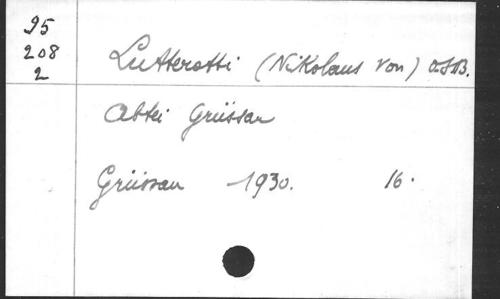 25
208
2
Lutterotti (Nikolaus von) O.S.B.
Abtei Grüssau
Grüssau 1930. 16.